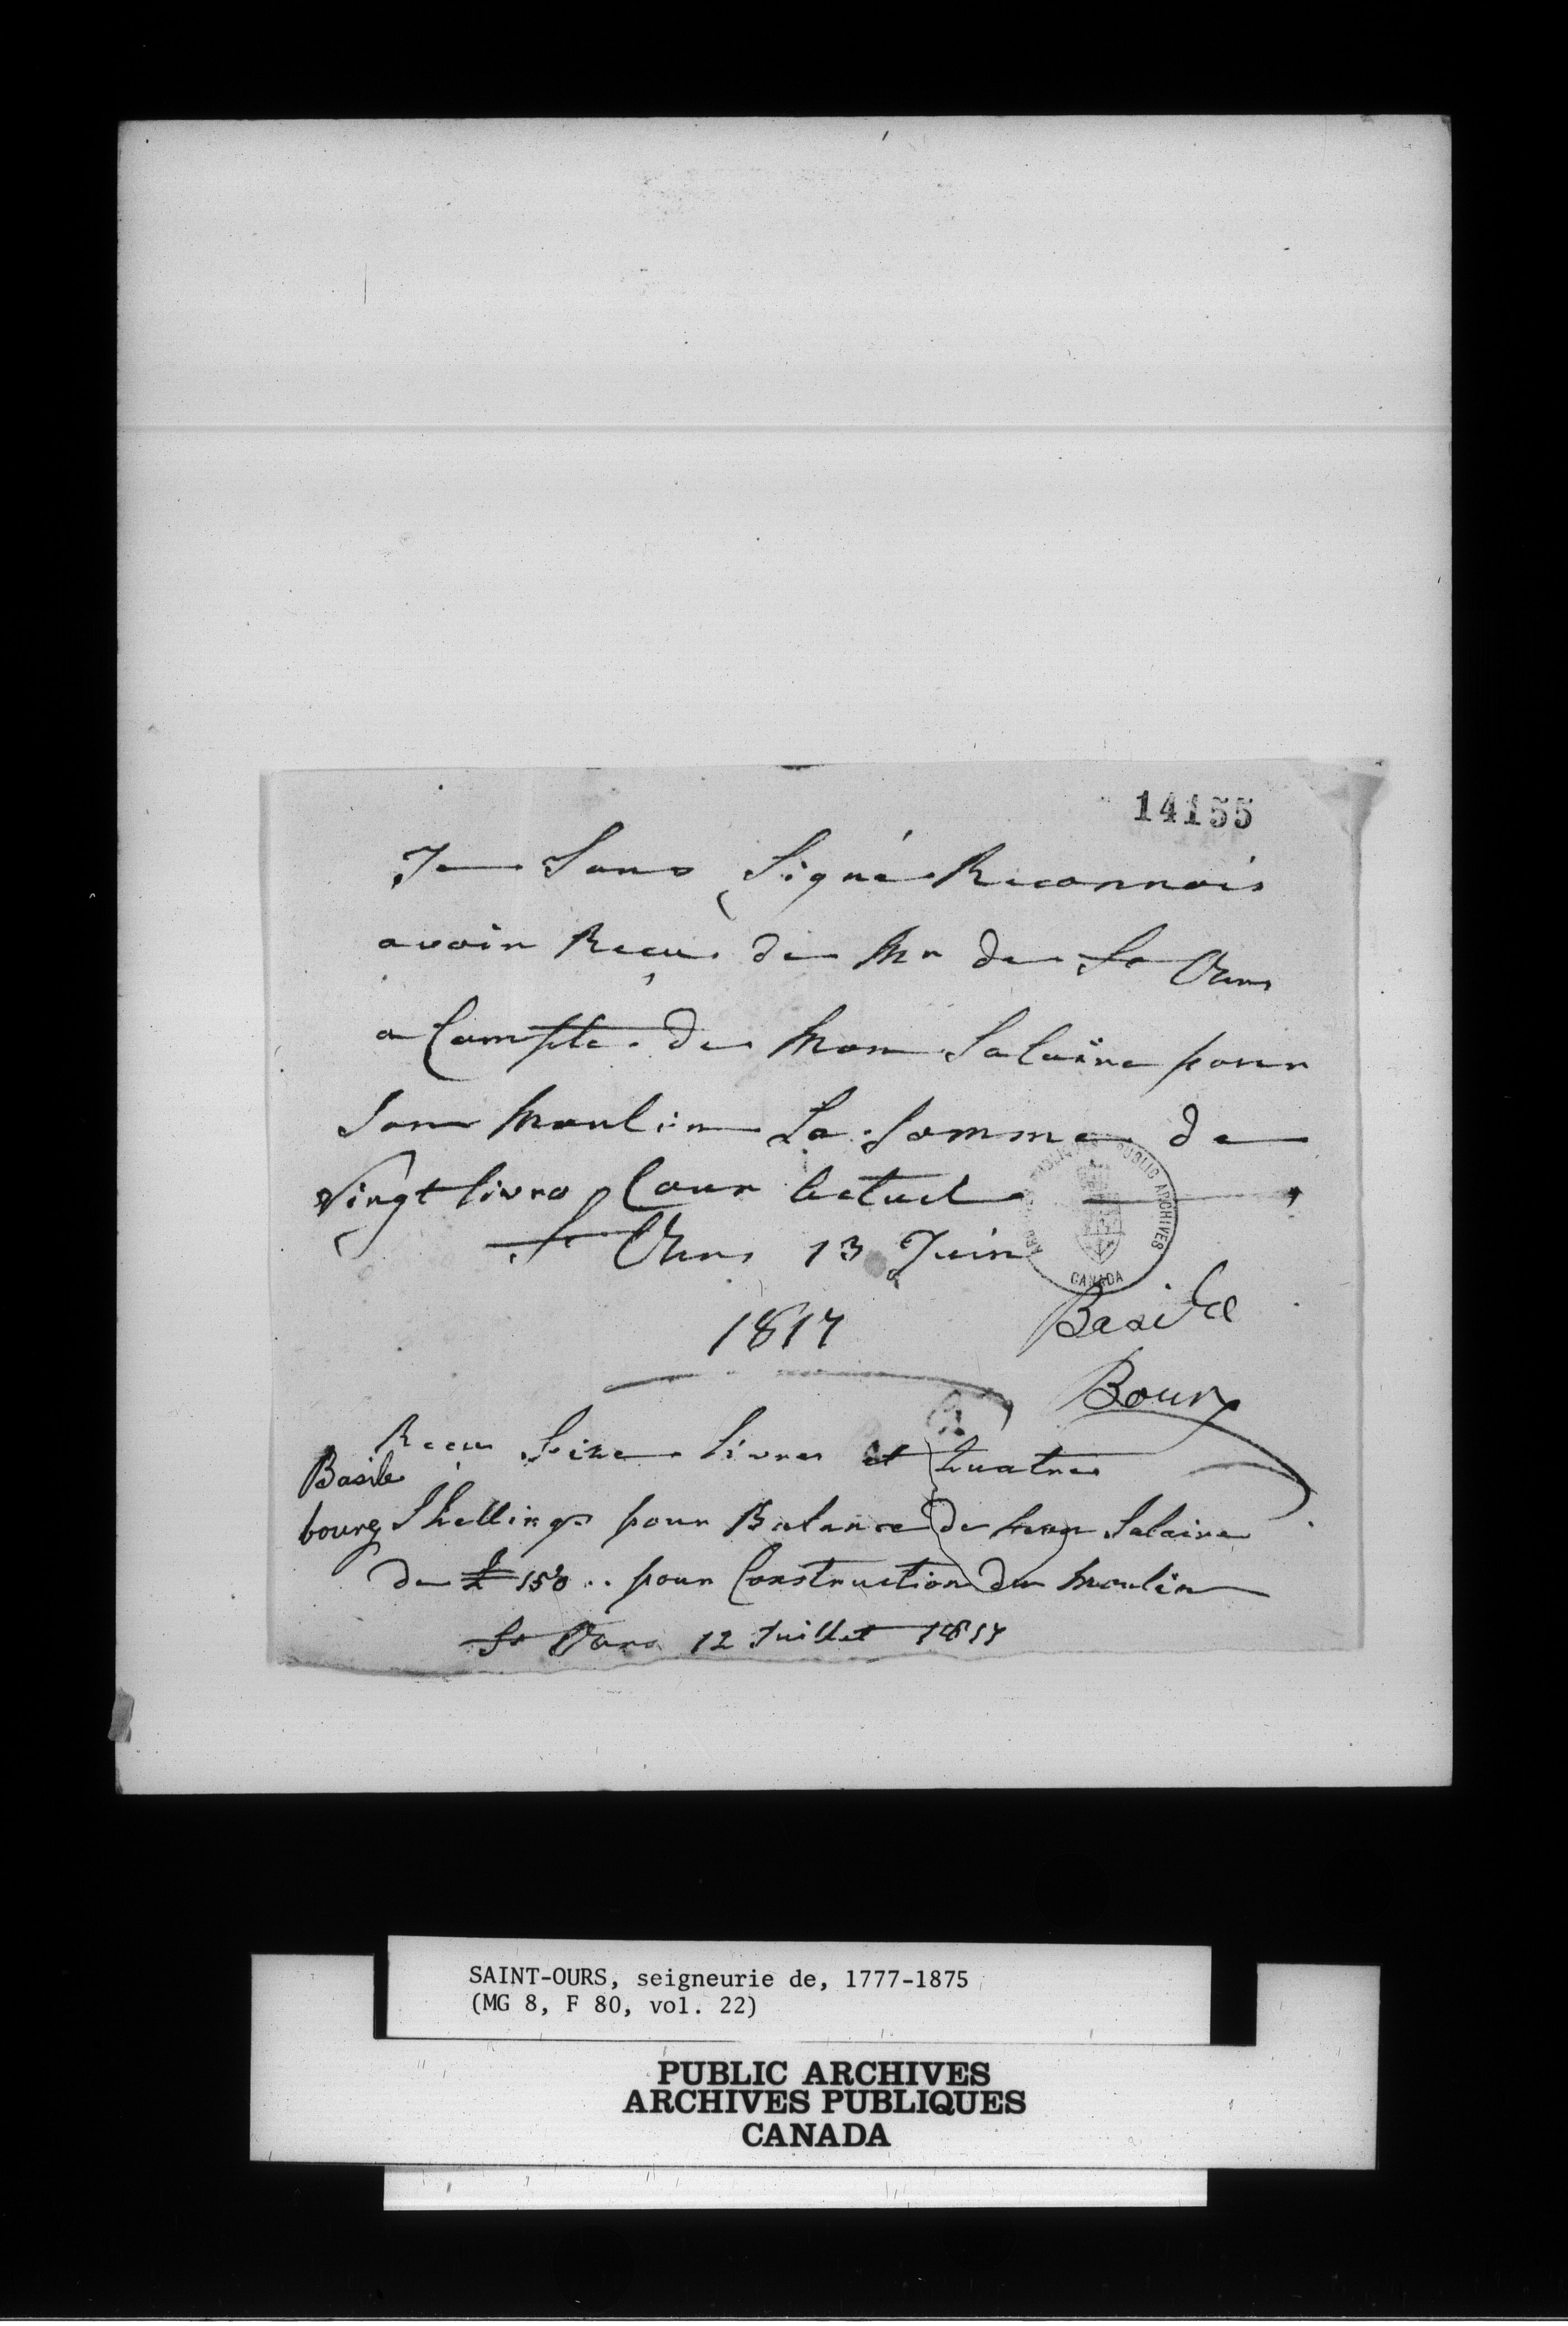 14155
Je Sous Signé Reconnois
avoir Reçu de Mr de St Ours
a Compte de mon Salaire pour
Son moulin La Somme de
Vingt livre Cour actuel
St Ours 13 Juin
1817
Basile
Bourg
Reçu Seize Livres et Quatre
Basile
bourg Shellings pour Balance de mon Salaire
de £ 150 .. pour Construction du moulin
St Ours 12 Juillet 1817
PUBLIC ARCHIVES
CANADA
SAINT-OURS, seigneurie de, 1777-1875
(MG 8, F 80, vol. 22)
PUBLIC ARCHIVES
ARCHIVES PUBLIQUES
CANADA